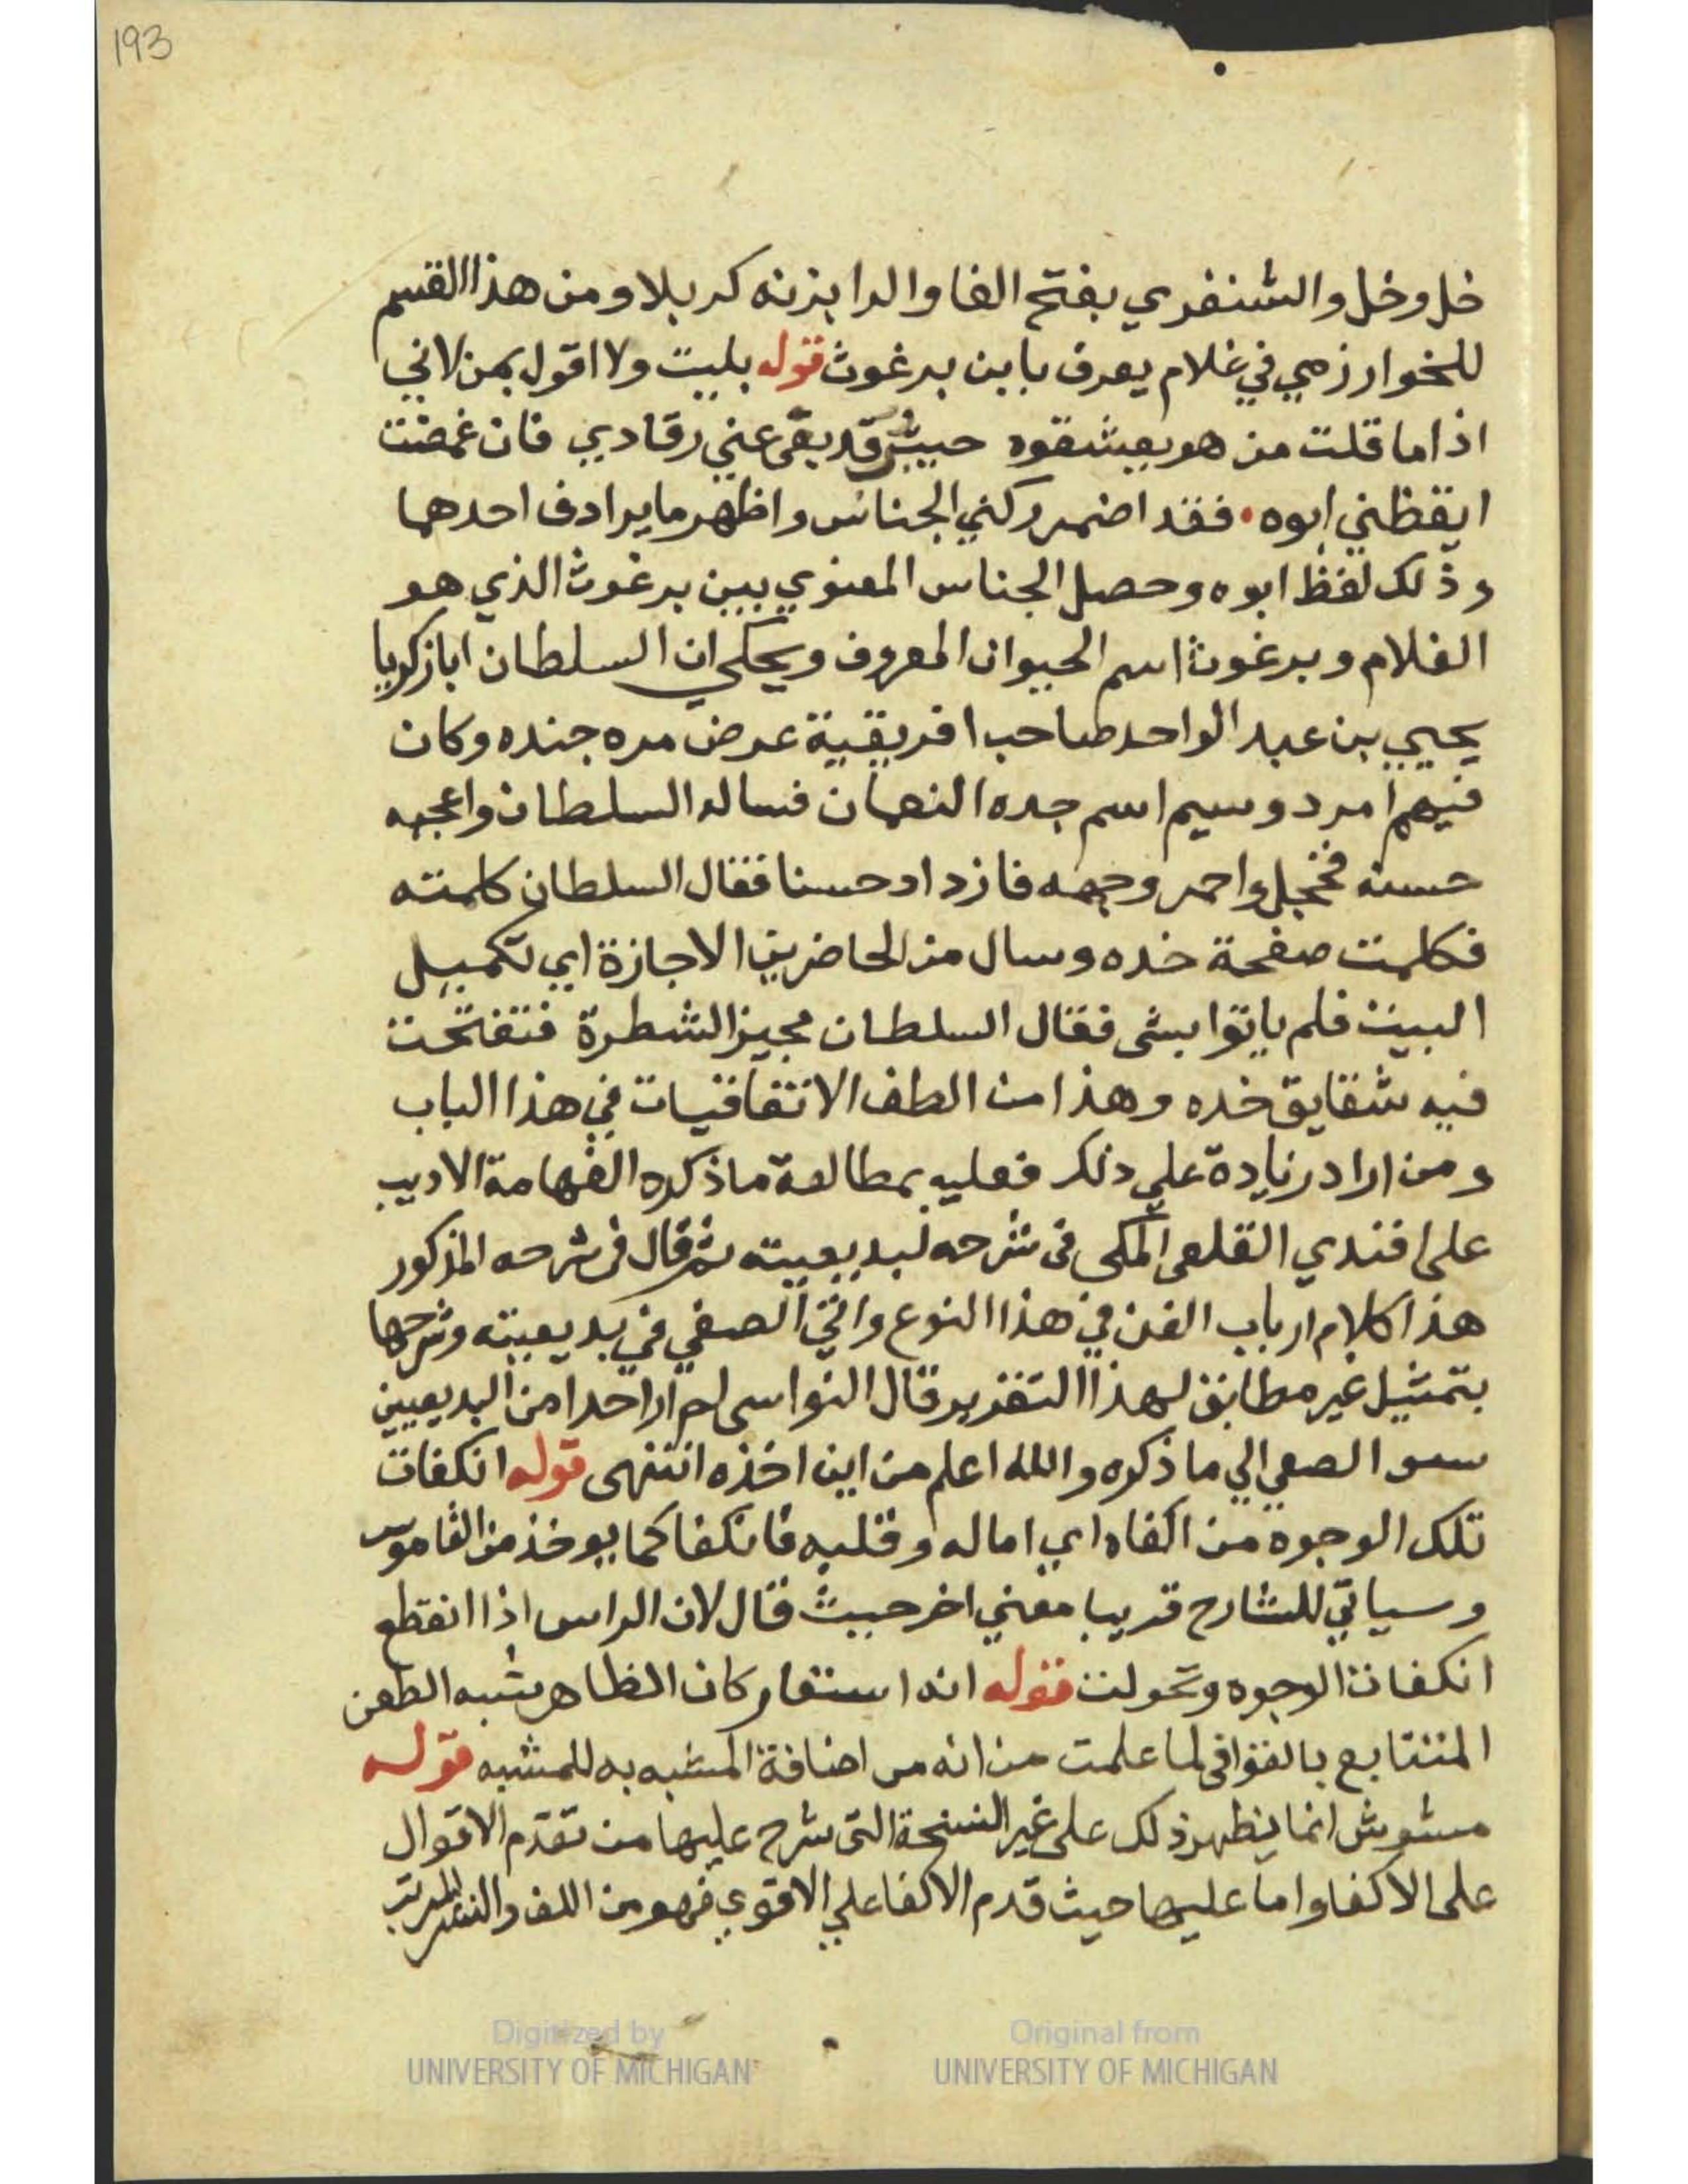 193
خل وخل والشنفري بفتح الفا والرا بزنه كربلا ومن هذا القسم
للخوارزمي في غلام يعرف بابن برغوث قوله بليت ولا اقول بمن لاني
اذا ما قلت من هو يعشقوه حبيب قد بقي عني رقادي فان غمضت
ايقظني ابوه • فقد اضمر ركني الجناس واظهر ما يرادف احدهما
وذلك لفظ ابوه وحصل الجناس المعنوي بين برغوث الذي هو
الغلام وبرغوث اسم الحيوان المعروف ويحكي ان السلطان ابا زكريا
يحيي بن عبد الواحد صاحب افريقية عرض مره جنده وكان
فيهم امرد وسيم اسم جده النعمان فساله السلطان واعجبه
حسنه فخجل واحمر وجهه فازداد حسنا فقال السلطان كلمته
فكلمت صفحة خده وسال من الحاضرين الاجازة اي تكميل
البيت فلم ياتوا بشي فقال السلطان مجيز الشطرة فتفتحت
فيه شقايق خده وهذا من الطف الاتفاقيات في هذا الباب
ومن اراد زيادة علي ذلك فعليه بمطالعة ما ذكره الفهامة الاديب
على افندي القلعى المكى فى شرحه لبديعيته ثم قال فى شرحه المذكور
هذا كلام ارباب الفن في هذا النوع واتي الصفي في بديعيته وشرحها
بتمثيل غير مطابق لهذا التقرير قال النواسى لم ار احدا من البديعيين
سو الصفي الي ما ذكره والله اعلم من اين اخذه انتهى قوله انكفات
تلك الوجوه من اكفاه اي اماله وقلبه فانكفا كما يوخذ من القاموس
وسياتي للشارح قريبا معني اخر حيث قال لان الراس اذا انقطع
انكفات الوجوه وتحولت قوله انه استعار كان الظاهر شبه الطعن
المتتابع بالقوافى لما علمت من انه من اضافة المشبه به للمشبه قوله
مشوش انما يظهر ذلك على غير النسخة التى شرح عليها من تقدم الاقوال
على الاكفا واما عليها حيث قدم الاكفا علي الاقوي فهو من اللف والنشر المرتب
Digitized by
UNIVERSITY OF MICHIGAN
Original from
UNIVERSITY OF MICHIGAN